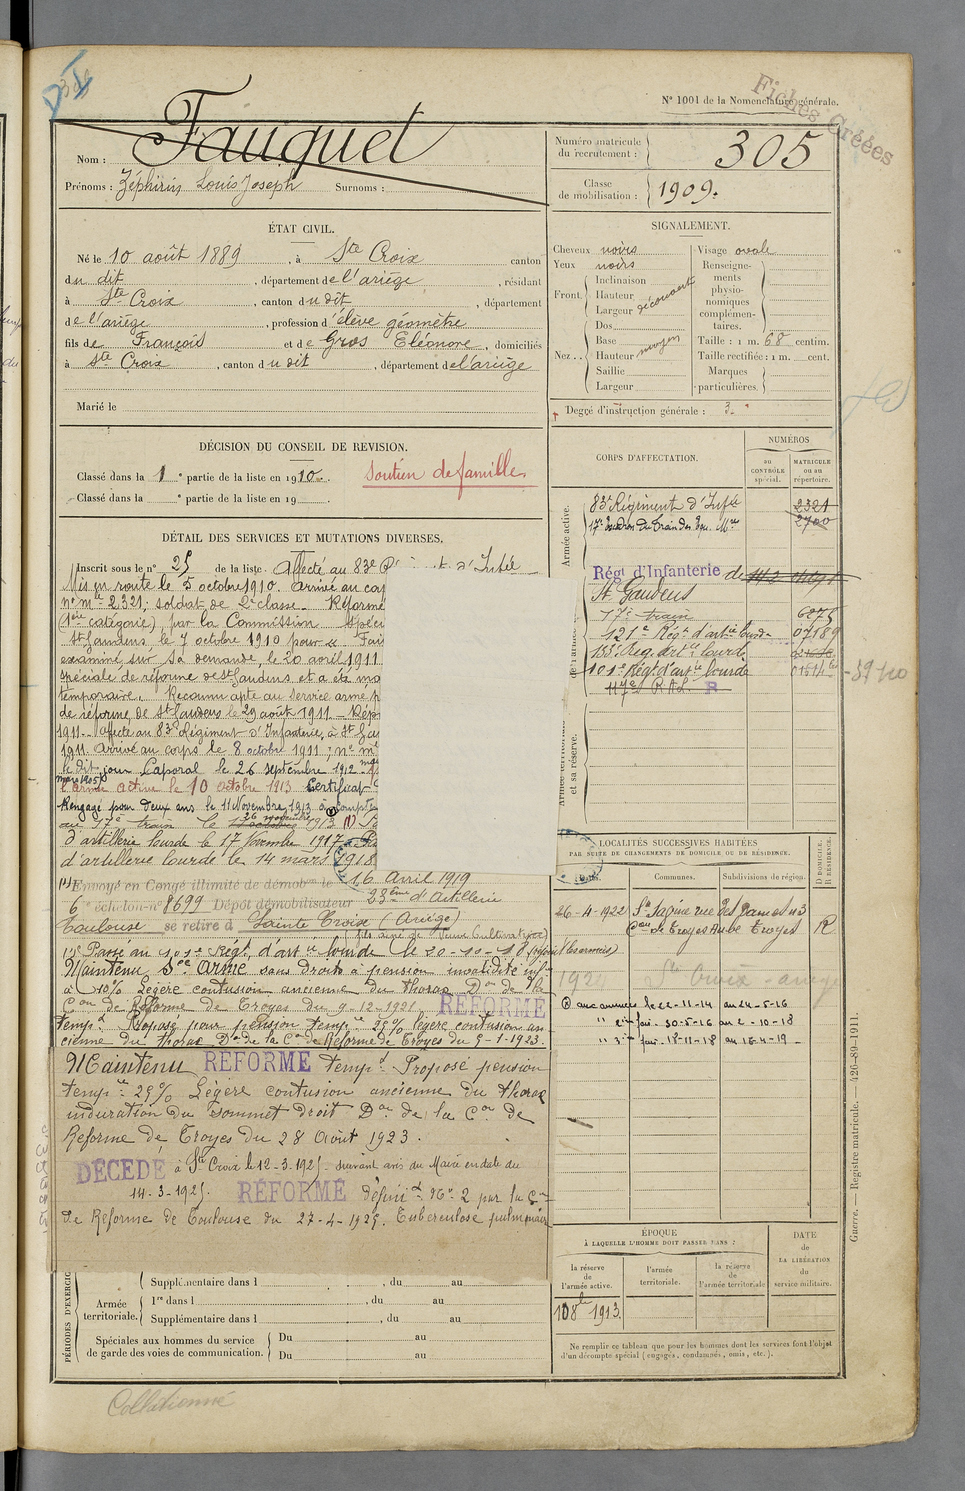 N° 1001 de la Nomenclature générale.
Fiches Créées
Nom : Fauquet
Prénoms : Zéphirin Louis Joseph Surnoms :
Numéro matricule du recrutement : 305
Classe de mobilisation : 1909.
ÉTAT CIVIL.
Né le 10 août 1889, à Ste Croix canton
du dit, département de l'ariège, résidant
à Ste Croix, canton du dit, département
de l'ariège, profession d'élève géomètre
fils de François et de Gros Eléonore, domiciliés
à Ste Croix, canton du dit, département de l'ariège
Marié le
SIGNALEMENT.
Cheveux noirs
Yeux noirs
Front Inclinaison
Hauteur
Largeur découvert
Nez Dos
Base
Hauteur moyen
Saillie
Largeur
Visage ovale
Renseignements physionomiques complémentaires.
Taille : 1 m. 68 centim.
Taille rectifiée : 1 m. cent.
Marques particulières.
Degré d'instruction générale : 3.
DÉCISION DU CONSEIL DE REVISION.
Classé dans la 1e partie de la liste en 1910.
soutien de famille
Classé dans la e partie de la liste en 19
CORPS D'AFFECTATION.
NUMÉROS
au CONTRÔLE spécial.
MATRICULE ou au répertoire.
Armée active.
83e Régiment d'Infie 2321
17e Escadron du Train des Equ. Mres 2700
Régt d'Infanterie de
St Gaudens
17e train 6275
121e Régt d'artie lourde 07189
135e Reg. art. lourde
101e Régt d'artie lourde
117e R A L. R
et sa réserve.
DÉTAIL DES SERVICES ET MUTATIONS DIVERSES.
Inscrit sous le n° 25 de la liste. Affecté au 83e
d'Infie
Mis en route le 5 octobre 1910. arrivé au
n° mle 2.321; soldat de 2e classe. Réformé
(1ère catégorie) par la Commission Spéci
St Gaudens, le 7 octobre 1910 pour
examiné, sur sa demande, le 20 avril 1911
spéciale de réforme de St Gaudens et a été
temporaire. Reconnu apte au service armé
de réforme de St Gaudens le 29 août 1911.
1911. affecté au 83e Régiment d'Infanterie, à St
1911. arrivé au corps le 8 octobre 1911; n° mle
le dit jour Caporal le 26 septembre 1912
l'armée active le 10 octobre 1913 Certificat
Rengagé pour deux ans le 11 Novembre 1913 à compter
au 17e train le 26 novembre 1913
d'artillerie lourde le 17 Novembre 1917
d'artillerie lourde le 14 mars 1918
Envoyé en Congé illimité de démobon le 16 Avril 1919
6e échelon n° 8699 Dépôt démobilisateur 23ème d'Artillerie
Toulouse se retire à Sainte Croix (Ariège)
Passé au 101e Régt d'artie lourde le 20-10-18
Maintenu Sce Armé sans droits à pension invalidité inf.
à 10% Légère contusion ancienne du thorax Don de la
Con de Réforme de Troyes du 9-12-1921. RÉFORMÉ
temp. Proposé pour pension tempre 25% légère contusion an
cienne du thorax Don de la Con de Réforme de Troyes du 9-1-1923.
Maintenu RÉFORMÉ temp. Proposé pension
tempre 25% Légère contusion ancienne du thorax
induration du sommet droit Don de la Con de
Réforme de Troyes du 28 Août 1923.
DÉCÉDÉ à Ste Croix le 12-3-1925 suivant avis du Maire en date du
14-3-1925. RÉFORMÉ défini
N° 2 par la Con
de Réforme de Toulouse du 27-4-1925. Tuberculose pulmonaire
LOCALITÉS SUCCESSIVES HABITÉES
PAR SUITE DE CHANGEMENTS DE DOMICILE OU DE RÉSIDENCE.
Communes.
Subdivisions de région.
D DOMICILE.
R RÉSIDENCE.
26-4-1922 Ste Savine rue des Gamots n3
Con de Troyes Aube Troyes R
aux armées le 22-11-14 au 24-5-16
" 2e fois - 30-5-16 au 2-10-18
" 3e fois - 18-11-18 au 16-4-19
ÉPOQUE
À LAQUELLE L'HOMME DOIT PASSER DANS :
la réserve de l'armée active.
l'armée territoriale.
la réserve de l'armée territoriale
DATE de LA LIBÉRATION du service militaire.
10 8bre 1913.
Ne remplir ce tableau que pour les hommes dont les services font l'objet
d'un décompte spécial (engagés, condamnés, omis, etc.).
PÉRIODES D'EXERCIC
Supplémentaire dans l , du au
Armée territoriale.
1re dans l , du au
Supplémentaire dans l , du au
Spéciales aux hommes du service
de garde des voies de communication.
Du au
Du au
Guerre. — Registre matricule. — 426-89-1911.
Collationné